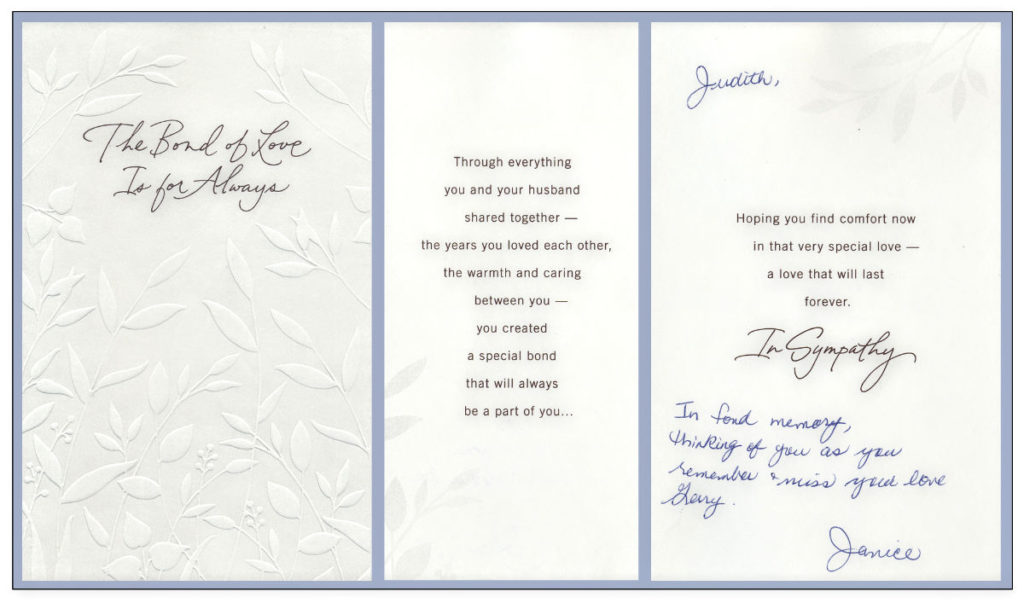 The Bond of Love
Is for Always
Through everything
you and your husband
shared together —
the years you loved each other,
the warmth and caring
between you —
you created
a special bond
that will always
be a part of you...
Judith,
Hoping you find comfort now
in that very special love —
a love that will last
forever.
In Sympathy
In fond memory,
thinking of you as you
remember & miss your love
Gary.
Janice